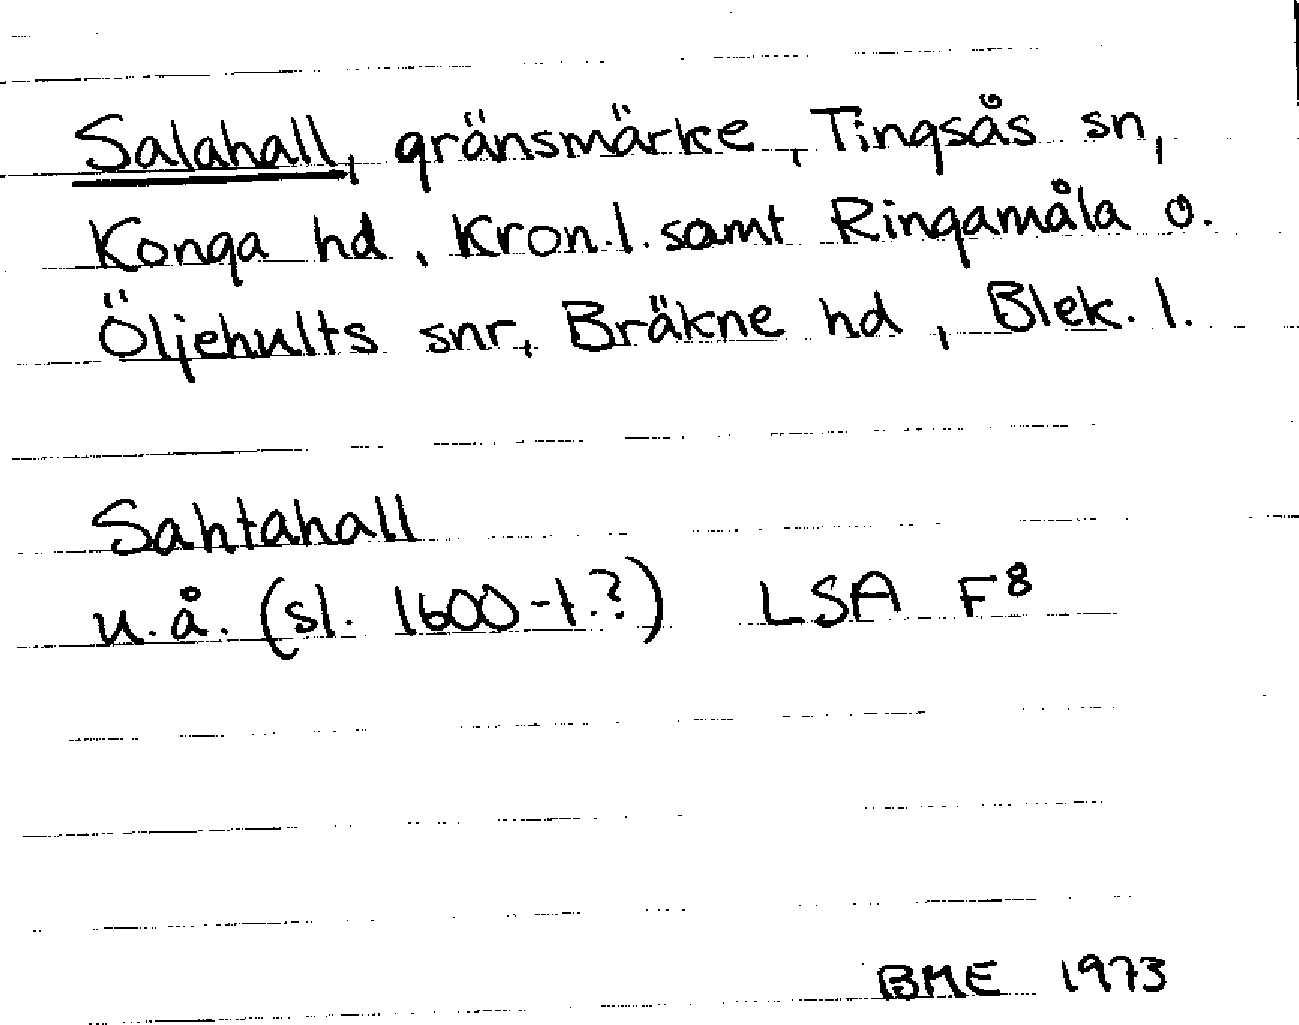 Salahall, gränsmärke, Tingsås sn,
Konga hd, Kron.l. samt Ringamåla o.
Öljehults snr, Bräkne hd, Blek. l.
Sahtahall
u.å. (sl. 1600-t.?) LSA F8
BME 1973